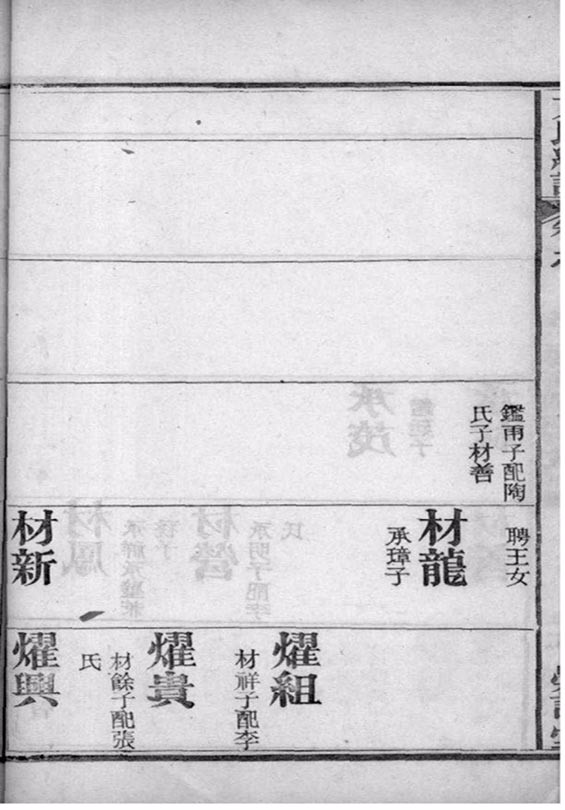 鑑子配陶
氏子材善
聘王女
材龍
承璋子
材新
燿組
材祥子配李
燿貴
材餘子配張
氏
燿興